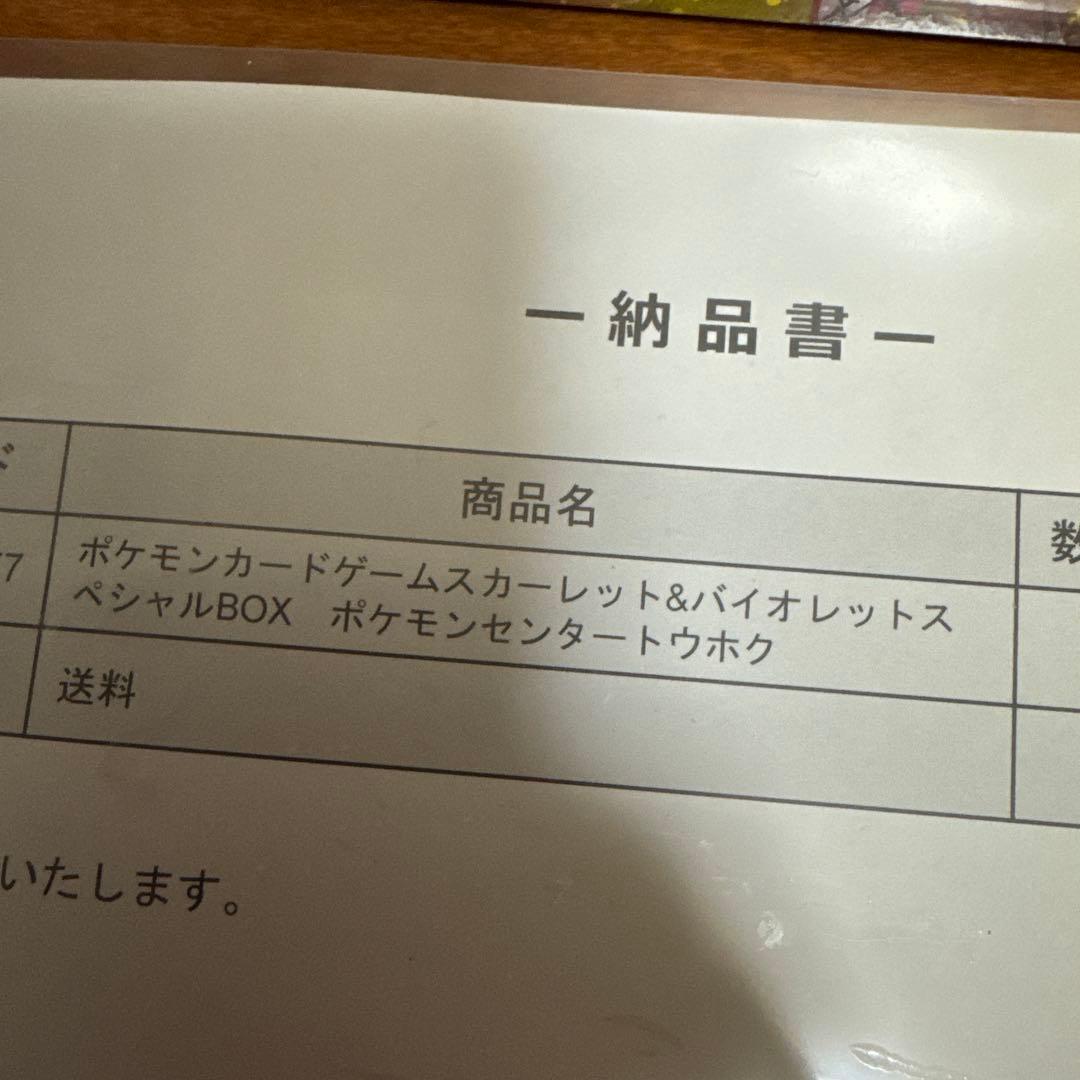 ー納品書ー
ド 商品名 数
77 ポケモンカードゲームスカーレット&バイオレットス
ペシャルBOX　ポケモンセンタートウホク
送料
いたします。